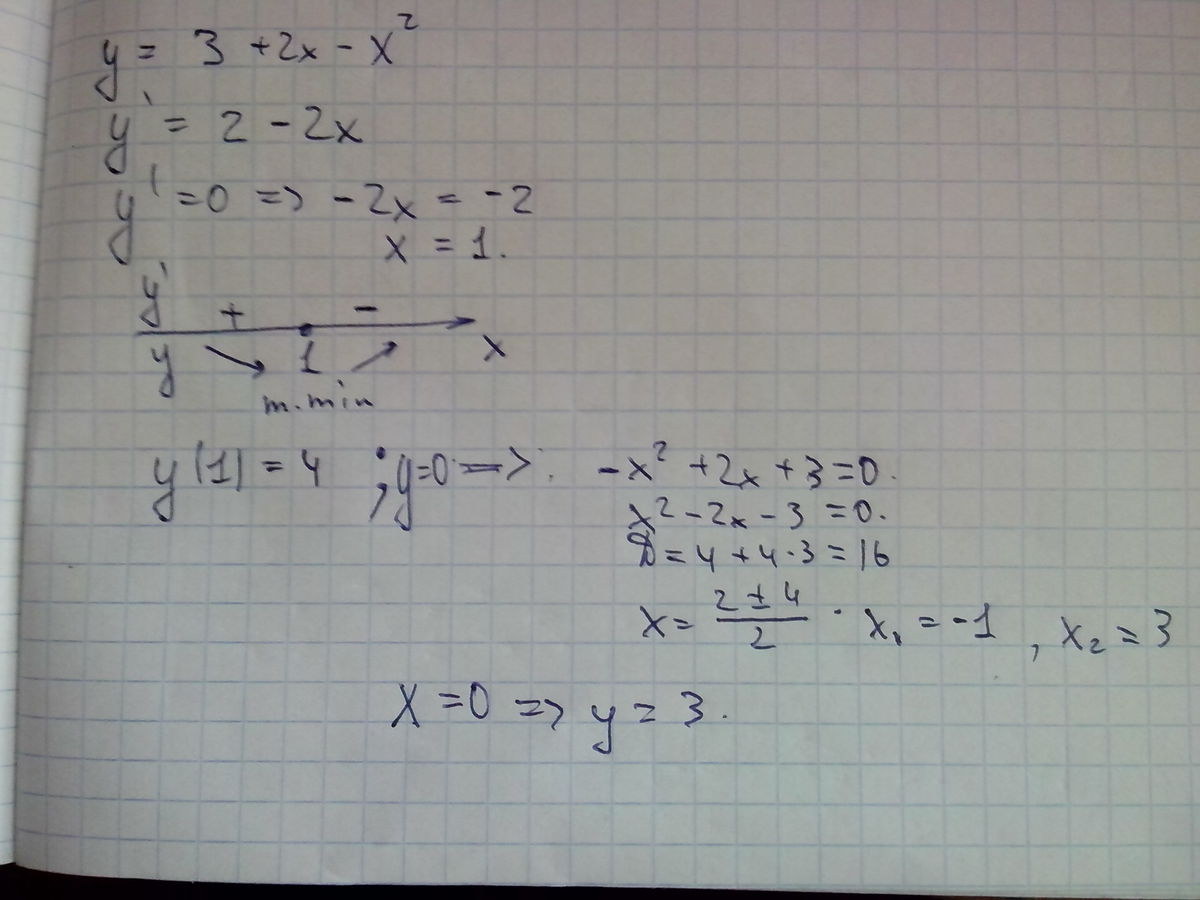 y = 3 + 2x - x²
y' = 2 - 2x
y' = 0 => -2x = -2
x = 1.
y' + -
y ↘ 1 ↗ x
m. min
y(1) = 4 ; y=0 => : -x² + 2x + 3 = 0.
x² - 2x - 3 = 0.
D = 4 + 4·3 = 16
x = (2 ± 4)/2 · x₁ = -1 , x₂ = 3
X = 0 => y = 3.